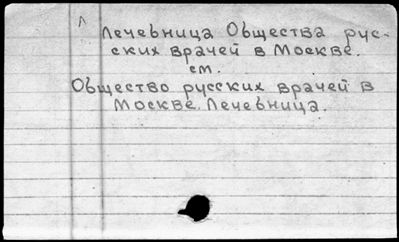 Л
Лечебница Общества рус-
ских врачей в Москве.
см.
Общество русских врачей в
Москве. Лечебница.